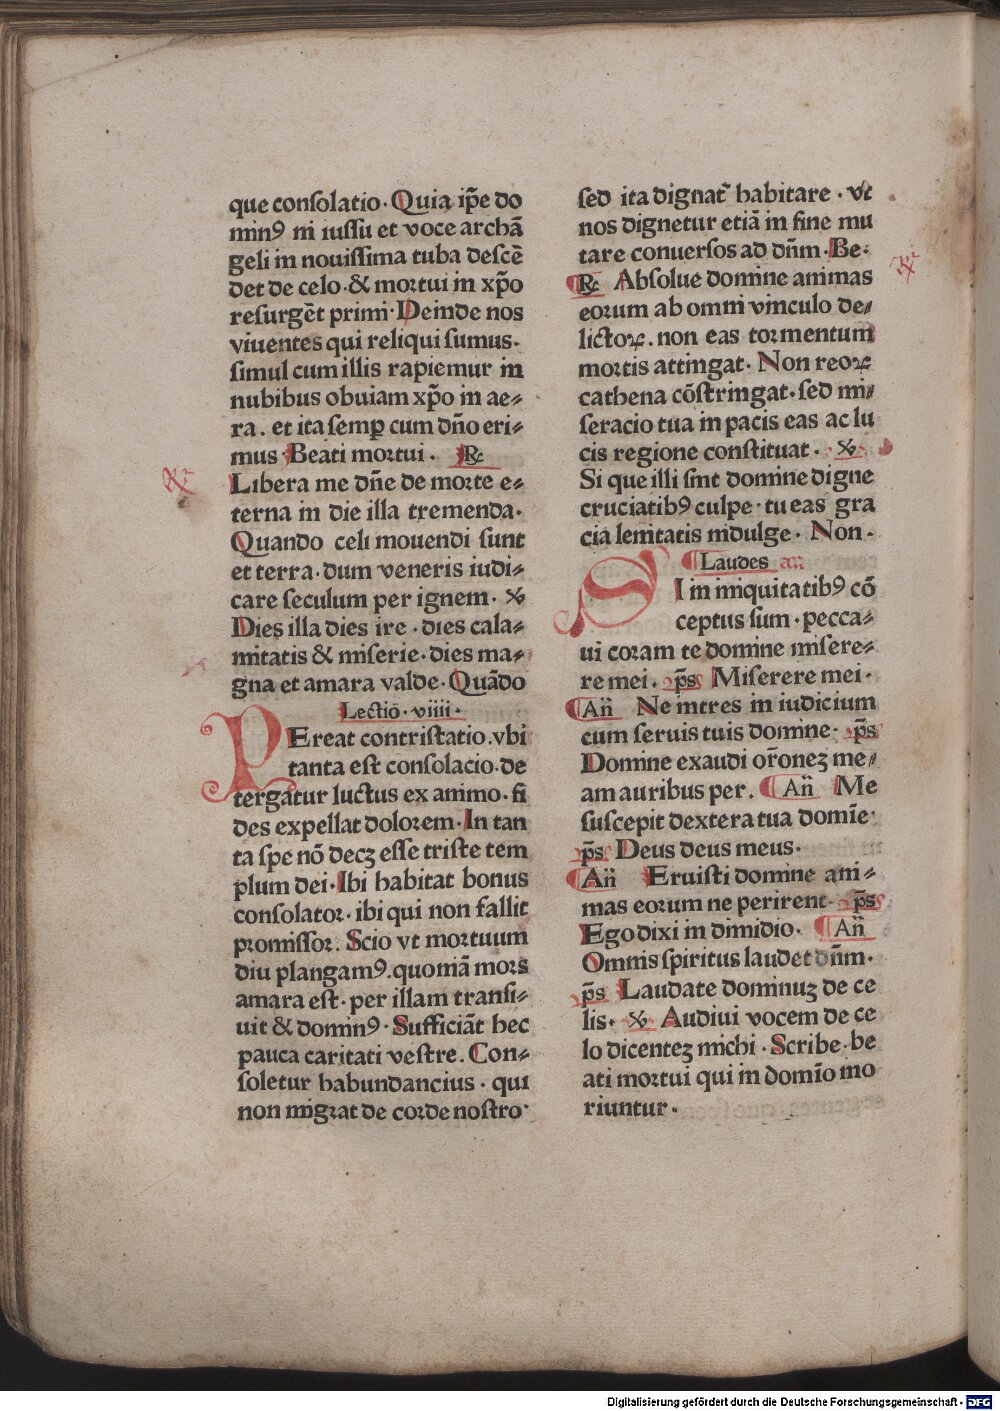 que conſolatio. Quia ip̄e do
minꝰ ni iuſſu et voce archā
geli in nouiſſima tuba deſcē
det de celo. & moꝛtui in xp̄o
reſurgēt primi. Deinde nos
viuentes qui reliqui ſumus.
ſimul cum illis rapiemur in
nubibus obuiam xp̄o in ae⸗
ra. et ita ſemꝑ cum dn̄o eri⸗
mus Beati moꝛtui. ℟
Libera me dn̄e de moꝛte e⸗
terna in die illa tremenda.
Quando celi mouendi ſunt
et terra. dum veneris iudi⸗
care ſeculum per ignem. ℣
Dies illa dies ire. dies cala⸗
mitatis & miſerie. dies ma⸗
gna et amara valde. Quādo
Lectiō. viiii.
PEreat contriſtatio. vbi
tanta eſt conſolacio. de
tergatur luctus ex animo. fi
des expellat dolorem. In tan
ta ſpe nō decꝫ eſſe triſte tem
plum dei. Ibi habitat bonus
conſolatoꝛ. ibi qui non fallit
pꝛomiſſoꝛ. Scio vt moꝛtuum
diu plangamꝰ. quoniā moꝛs
amara eſt. per illam tranſi⸗
uit & dominꝰ. Sufficiāt hec
pauca caritati veſtre. Con⸗
ſoletur habundancius. qui
non migrat de coꝛde noſtro.
ſed ita dignat᷑ habitare. vt
nos dignetur etiā in fine mu
tare conuerſos ad dn̄m. Be.
℟ Abſolue domine animas
eoꝛum ab omni vinculo de⸗
lictoꝝ. non eas toꝛmentum
moꝛtis attingat. Non reoꝝ
cathena cōſtringat. ſed mi⸗
ſeracio tua in pacis eas ac lu
cis regione conſtituat. ℣
Si que illi ſint domine digne
cruciatibꝰ culpe. tu eas gra
cia lenitatis indulge. Non.
Laudes an
SI in iniquitatibꝰ cō
ceptus ſum. pecca⸗
ui coꝛam te domine miſere⸗
re mei. p̄s Miſerere mei.
An̄ Ne intres in iudicium
cum ſeruis tuis domine. p̄s
Domine exaudi oꝛ̄oneꝫ me⸗
am auribus per. An̄ Me
ſuſcepit dextera tua domīe.
p̄s Deus deus meus.
An̄ Eruiſti domine ani⸗
mas eoꝛum ne perirent. p̄s
Ego dixi in dimidio. An̄
Omnis ſpiritus laudet dn̄m.
p̄s Laudate dominuꝫ de ce
lis. ℣ Audiui vocem de ce
lo dicenteꝫ michi. Scribe. be
ati moꝛtui qui in domīo mo
riuntur.
Digitalisierung gefördert durch die Deutsche Forschungsgemeinschaft - DFG